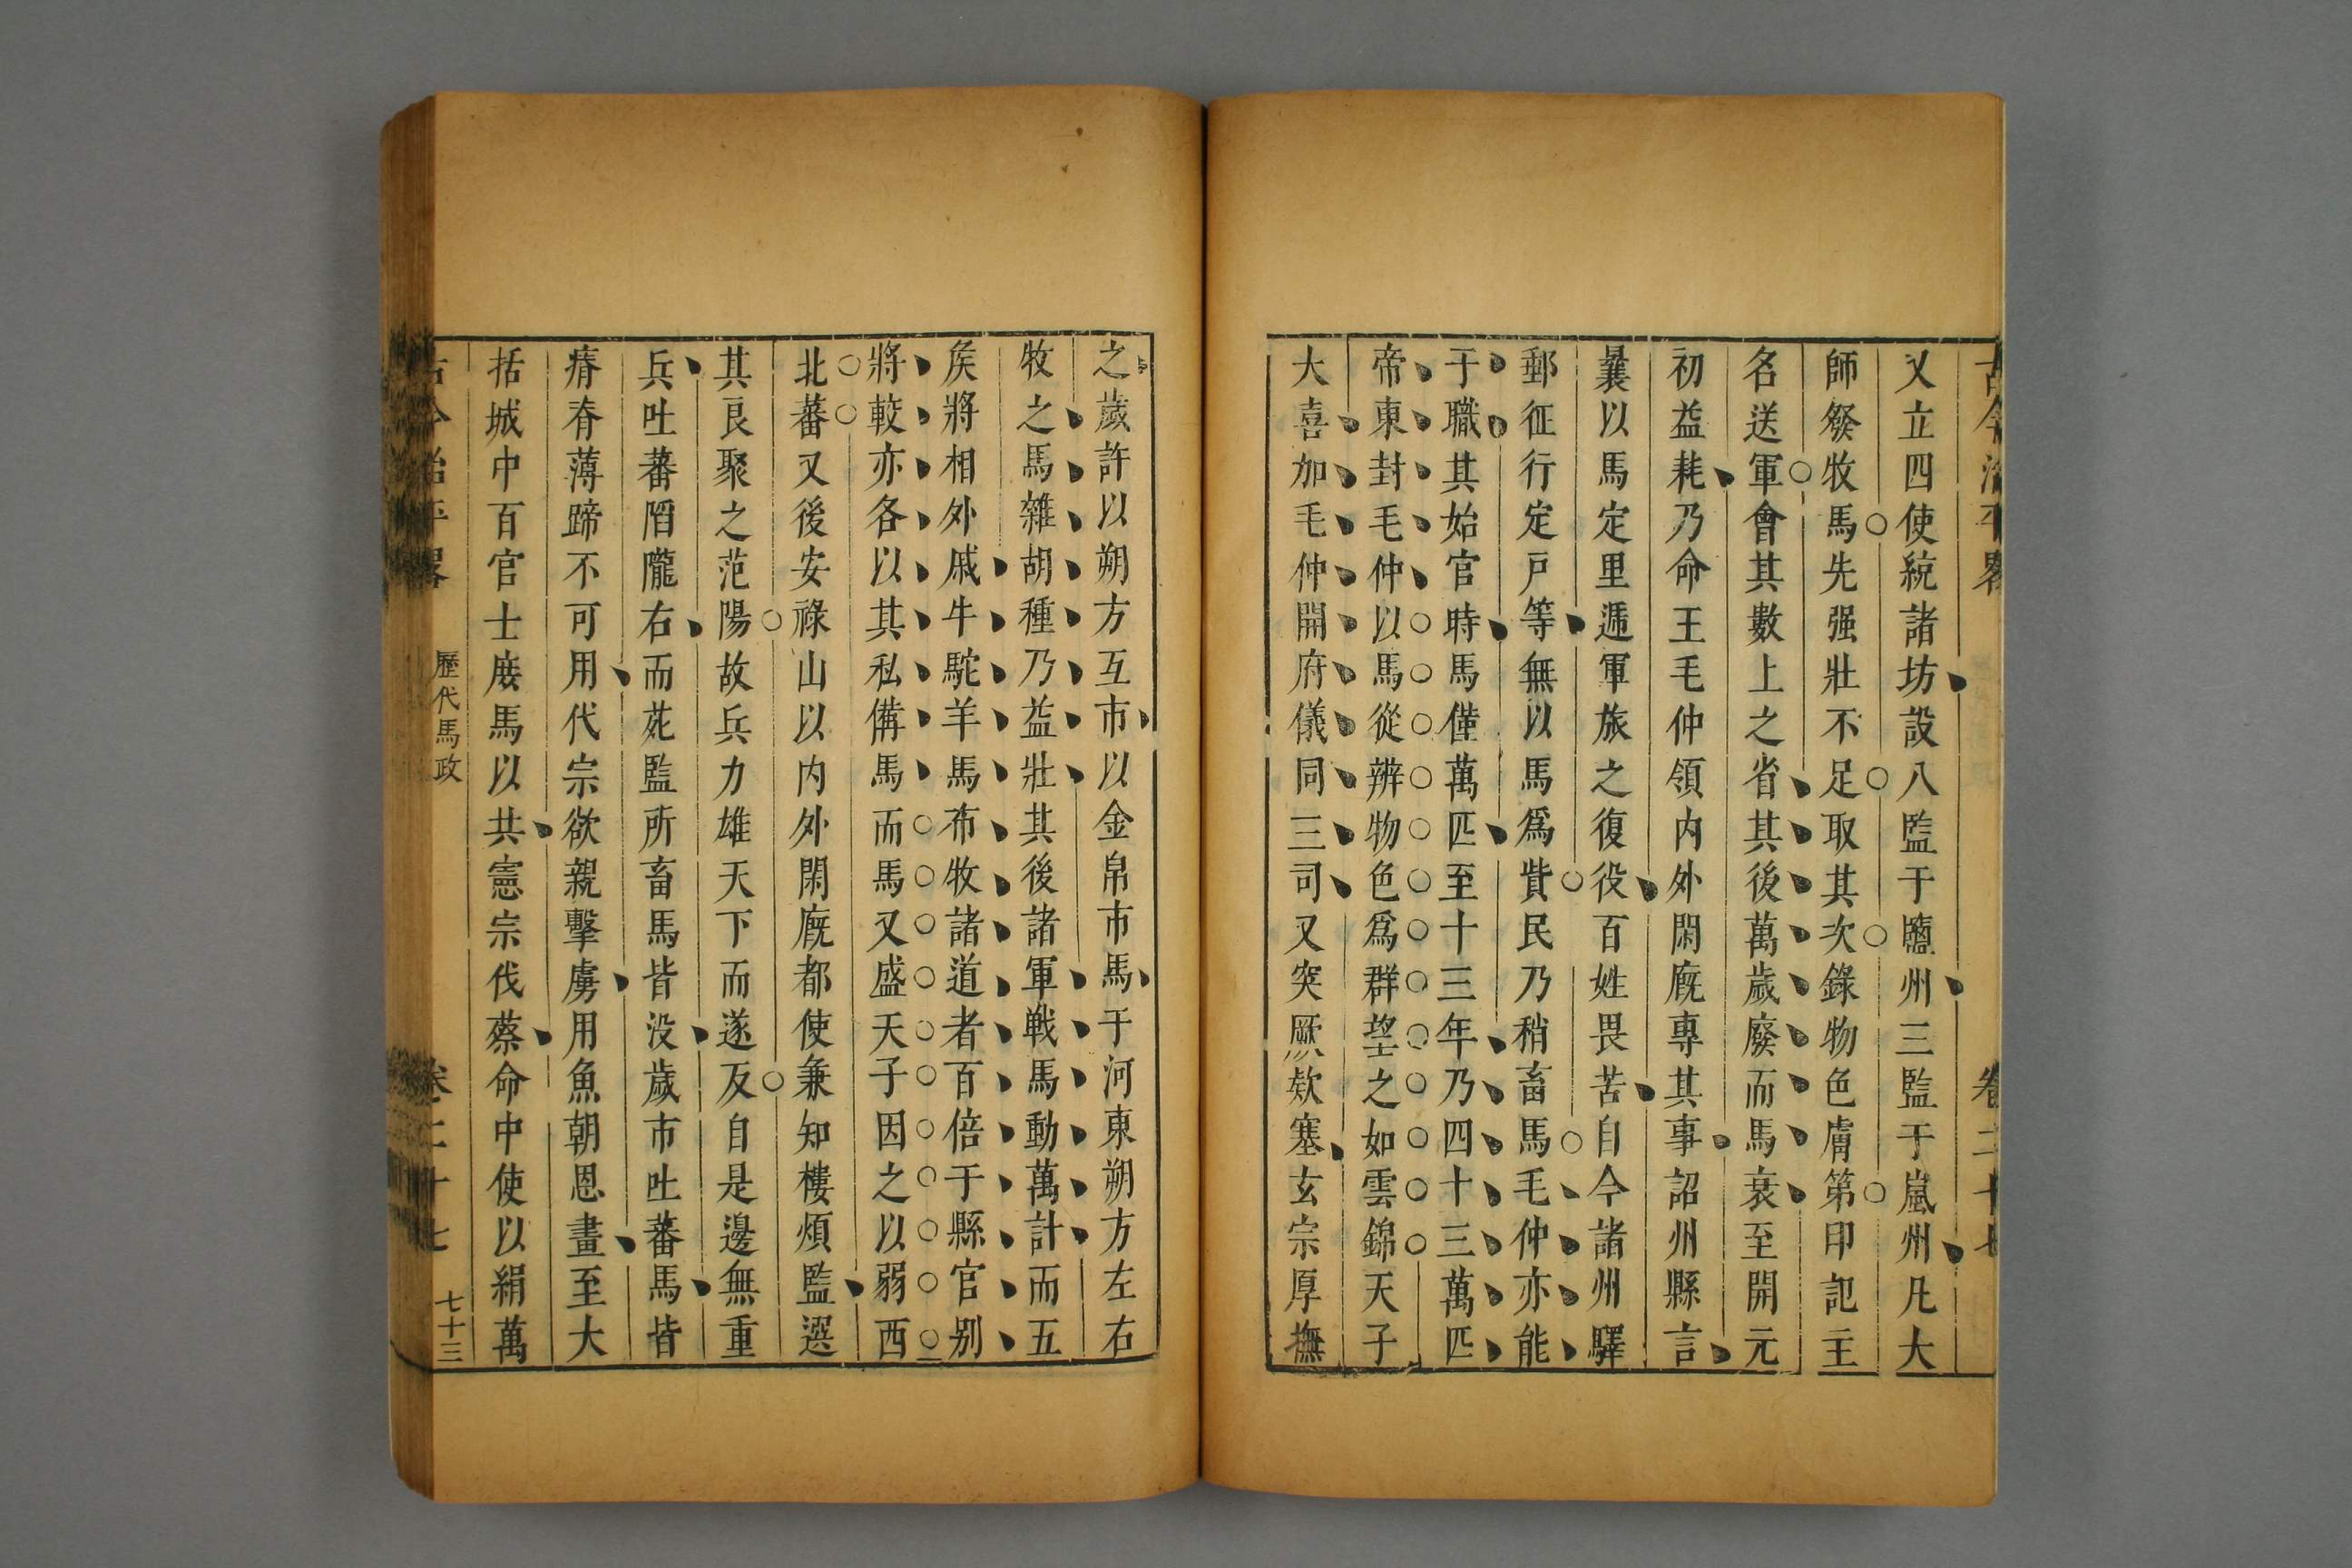 古今治平畧 卷二十七
又立四使統諸坊設八監于鹽州三監于嵐州凡大
師發牧馬先强壯不足取其次錄物色膚第印記主
名送軍會其數上之省其後萬歲廢而馬衰至開元
初益耗乃命王毛仲領内外閑廐專其事詔州縣言
曩以馬定里遞軍旅之復役百姓畏苦自今諸州驛
郵征行定戸等無以馬爲貲民乃稍畜馬毛仲亦能
于職其始官時馬僅萬匹至十三年乃四十三萬匹
帝東封毛仲以馬從辨物色爲群望之如雲錦天子
大喜加毛仲開府儀同三司又突厥欵塞玄宗厚撫
之歲許以朔方互市以金帛市馬于河東朔方左右
牧之馬雜胡種乃益壯其後諸軍戰馬動萬計而五
矦將相外戚牛駝羊馬布牧諸道者百倍于縣官别
將較亦各以其私備馬而馬又盛天子因之以弱西
北蕃又後安祿山以内外閑廐都使兼知樓煩監選
其良聚之范陽故兵力雄天下而遂反自是邊無重
兵吐蕃陷隴右而苑監所畜馬皆没歲市吐蕃馬皆
瘠脊薄蹄不可用代宗欲親擊虜用魚朝恩畫至大
括城中百官士庶馬以共憲宗伐蔡命中使以絹萬
古今治平畧 歷代馬政 卷二十七 七十三